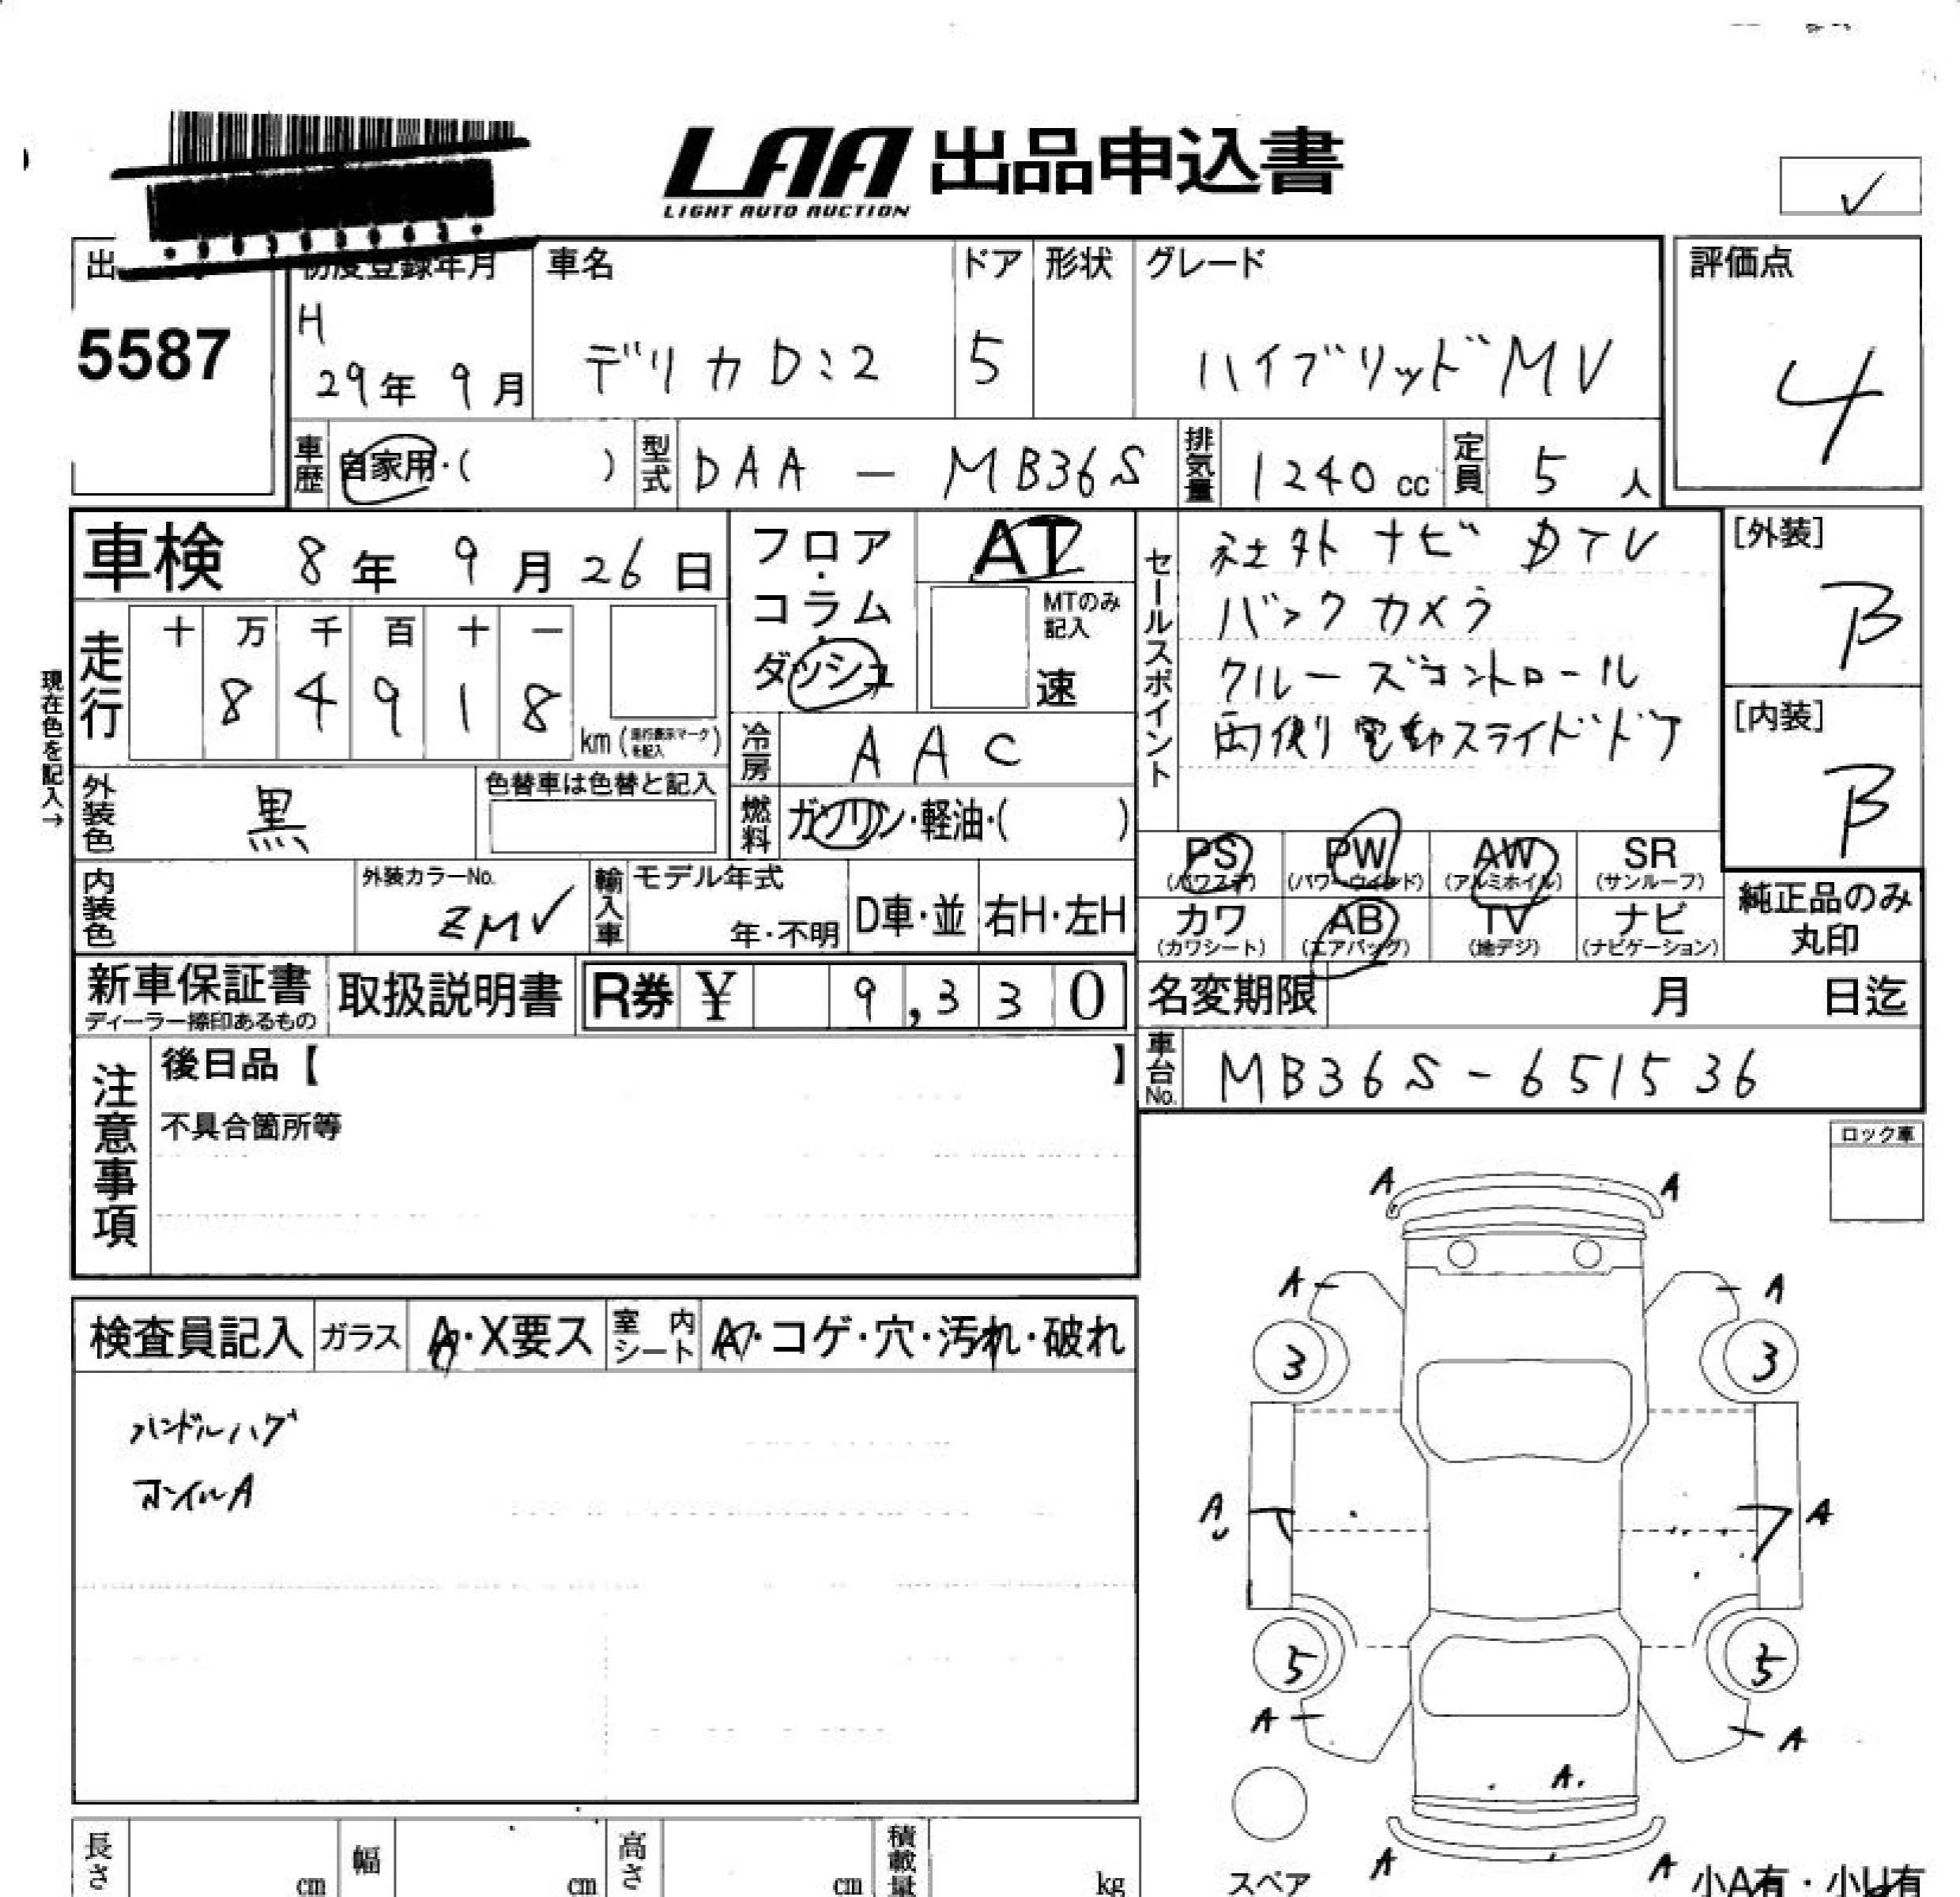 LAA 出品申込書
LIGHT AUTO AUCTION
✓
出
5587
初度登録年月
H
29年 9月
車名
デリカD:2
ドア
5
形状
グレード
ハイブリッドMV
評価点
4
車歴
自家用・( )
型式
DAA - MB36S
排気量
1240 cc
定員
5 人
車検 8年 9月 26日
フロア・コラム・ダッシュ
AT
MTのみ記入
速
現在色を記入→
走行
十 万 千 百 十 一
8 4 9 1 8
km
冷房
AAC
外装色
黒
色替車は色替と記入
燃料
ガソリン・軽油・( )
内装色
外装カラーNo.
ZMV
輸入車
モデル年式
年・不明
D車・並
右H・左H
セールスポイント
社外ナビ DTV
バックカメラ
クルーズコントロール
両側電動スライドドア
[外装]
B
[内装]
B
PS (パワステ)
PW (パワーウインド)
AW (アルミホイル)
SR (サンルーフ)
カワ (カワシート)
AB (エアバッグ)
TV (地デジ)
ナビ (ナビゲーション)
純正品のみ
丸印
新車保証書
ディーラー捺印あるもの
取扱説明書
R券 ¥ 9,330
名変期限 月 日迄
車台No.
MB36S-651536
注意事項
後日品【 】
不具合箇所等
ロック車
検査員記入
ガラス
A・X要ス
室内シート
A・コゲ・穴・汚れ・破れ
ハンドルハゲ
ホイルA
A A
A A
3 3
A A
5 5
A A
A
A A
スペア
小A有・小U有
長さ cm
幅 cm
高さ cm
積載量 kg